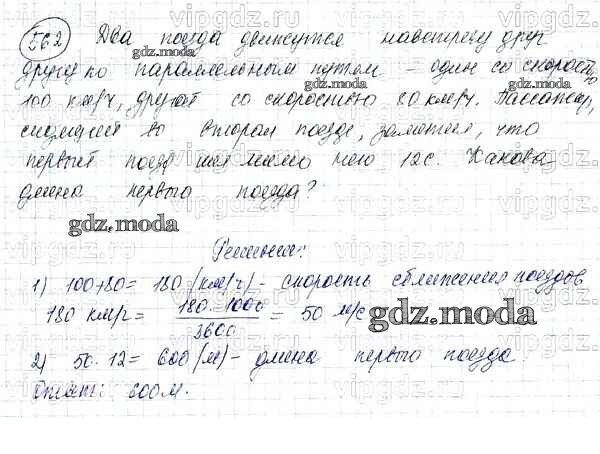 562 Два поезда движутся навстречу друг
gdz.moda
другу по параллельным путям - один со скорость
ю
100 км/ч, другой со скоростью 80 км/ч. Пассажир,
сидящий во втором поезде, заметил, что
первый поезд шел мимо него 12 с. Какова
длина первого поезда?
gdz.moda
gdz.moda
Решение:
1) 100+80 = 180 (км/ч) - скорость сближения поездов
180 км/ч = 180 · 1000 / 3600 = 50 м/с
gdz.moda
2) 50 · 12 = 600 (м) - длина первого поезда
Ответ: 600 м.
gdz.moda